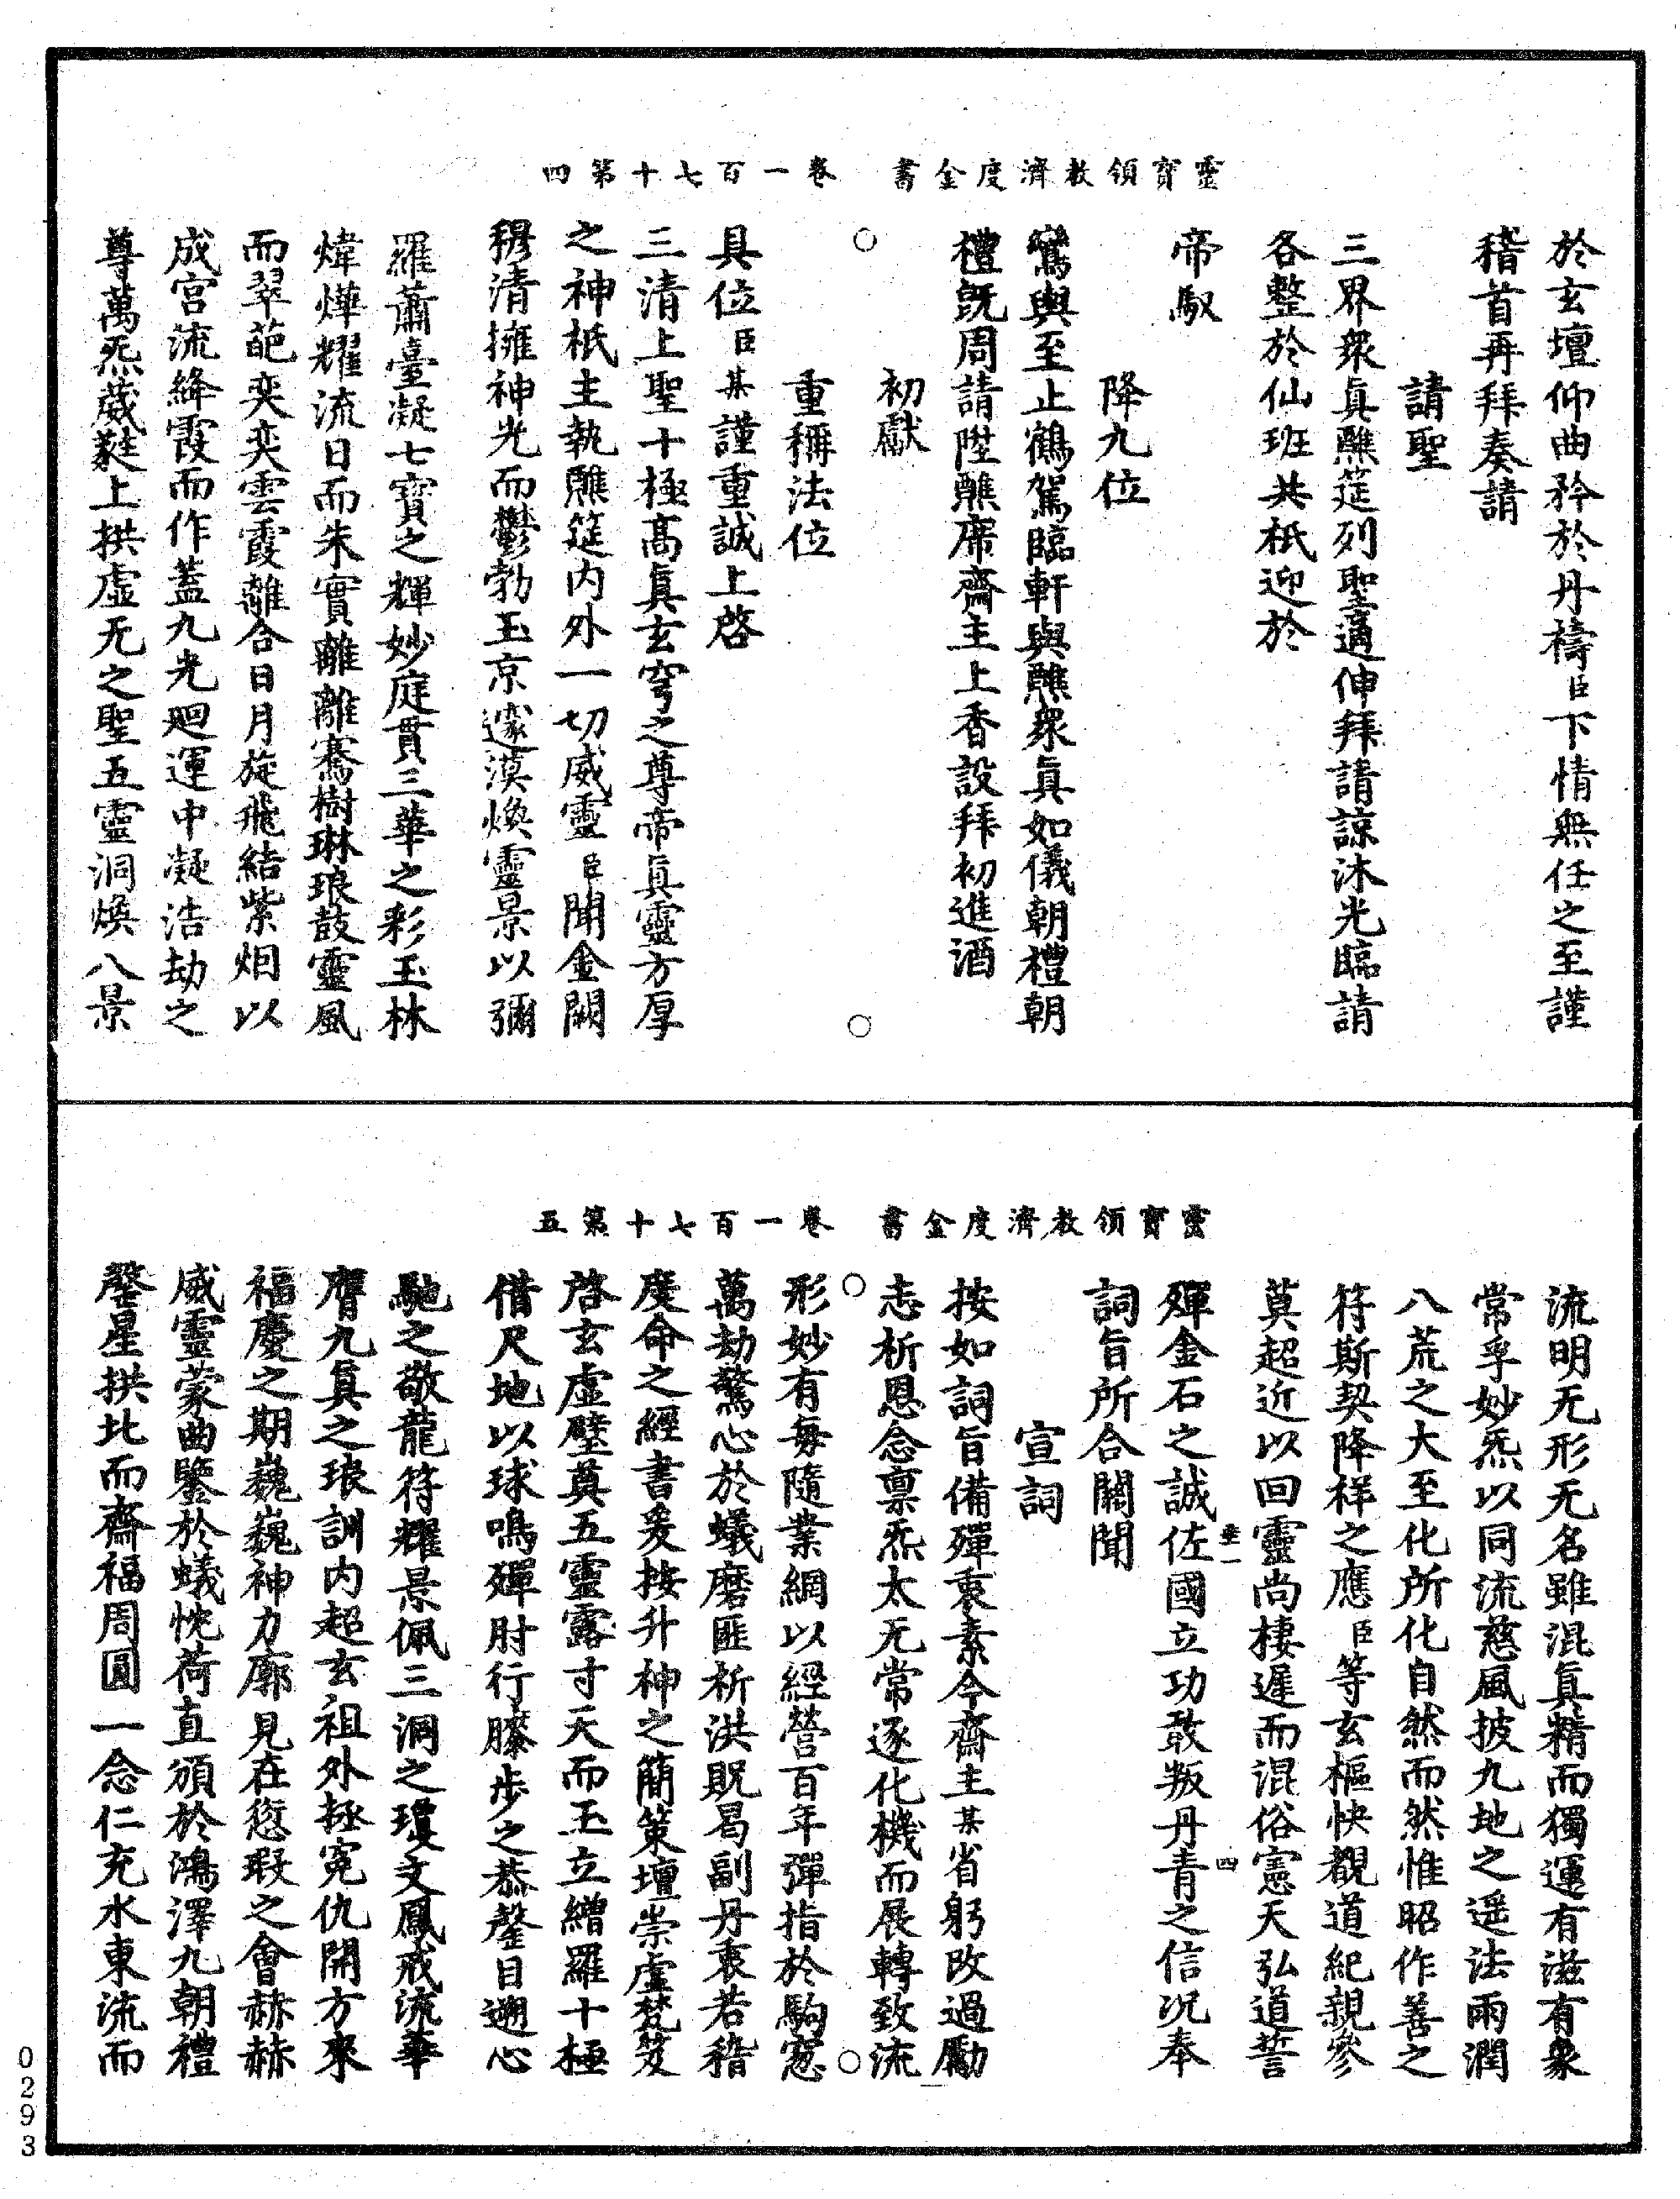 靈寶領教濟度金書　卷一百七十第四
於玄壇仰曲矜於丹禱臣下情無任之至謹
稽首再拜奏請
請聖
三界眾眞醮筵列聖適伸拜請諒沐光臨請
各整於仙班共祇迎於
帝馭
降九位
鸞輿至止鶴駕臨軒與醮眾眞如儀朝禮朝
禮旣周請陞醮席齋主上香設拜初進酒
初獻
○　○
重稱法位
具位臣某謹重誠上啓
三清上聖十極高眞玄穹之尊帝眞靈方厚
之神祇主執醮筵内外一切威靈臣聞金闕
穆清擁神光而鬱勃玉京邃漠煥靈景以彌
羅蕭臺凝七寶之輝妙庭貫三華之彩玉林
煒燁耀流日而朱實離離騫樹琳琅鼓靈風
而翠葩奕奕雲霞離合日月旋飛結紫烟以
成宫流絳霞而作蓋九光廻運中凝浩劫之
尊萬炁葳蕤上拱虛无之聖五靈洞煥八景
靈寶領教濟度金書　卷一百七十第五
流明无形无名雖混眞精而獨運有滋有象
常孚妙炁以同流慈風披九地之遥法雨潤
八荒之大至化所化自然而然惟昭作善之
符斯契降祥之應臣等玄樞快覩道紀親參
莫超近以回靈尚棲遲而混俗憲天弘道誓
殫金石之誠佐國立功敢叛丹青之信况奉
垂一　四
詞旨所合關聞
宣詞
按如詞旨備殫衷素今齋主某省躬改過勵
志析恩念禀炁太无常逐化機而展轉致流
○　○
形妙有每隨業網以經營百年彈指於駒窓
萬劫驚心於蟻磨匪析洪貺曷副丹衷若稽
度命之經書爰按升神之簡策壇崇虛梵笈
啓玄虛璧奠五靈露寸天而玉立繒羅十極
借尺地以球鳴殫肘行膝步之恭罄目遡心
馳之敬龍符耀景佩三洞之瓊文鳳戒流華
膺九眞之琅訓内超玄祖外拯寃仇開方來
福慶之期巍巍神力廓見在愆瑕之會赫赫
威靈蒙曲鑒於蟻忱荷直頒於鴻澤九朝禮
罄星拱北而齋福周圓一念仁充水東流而
0293